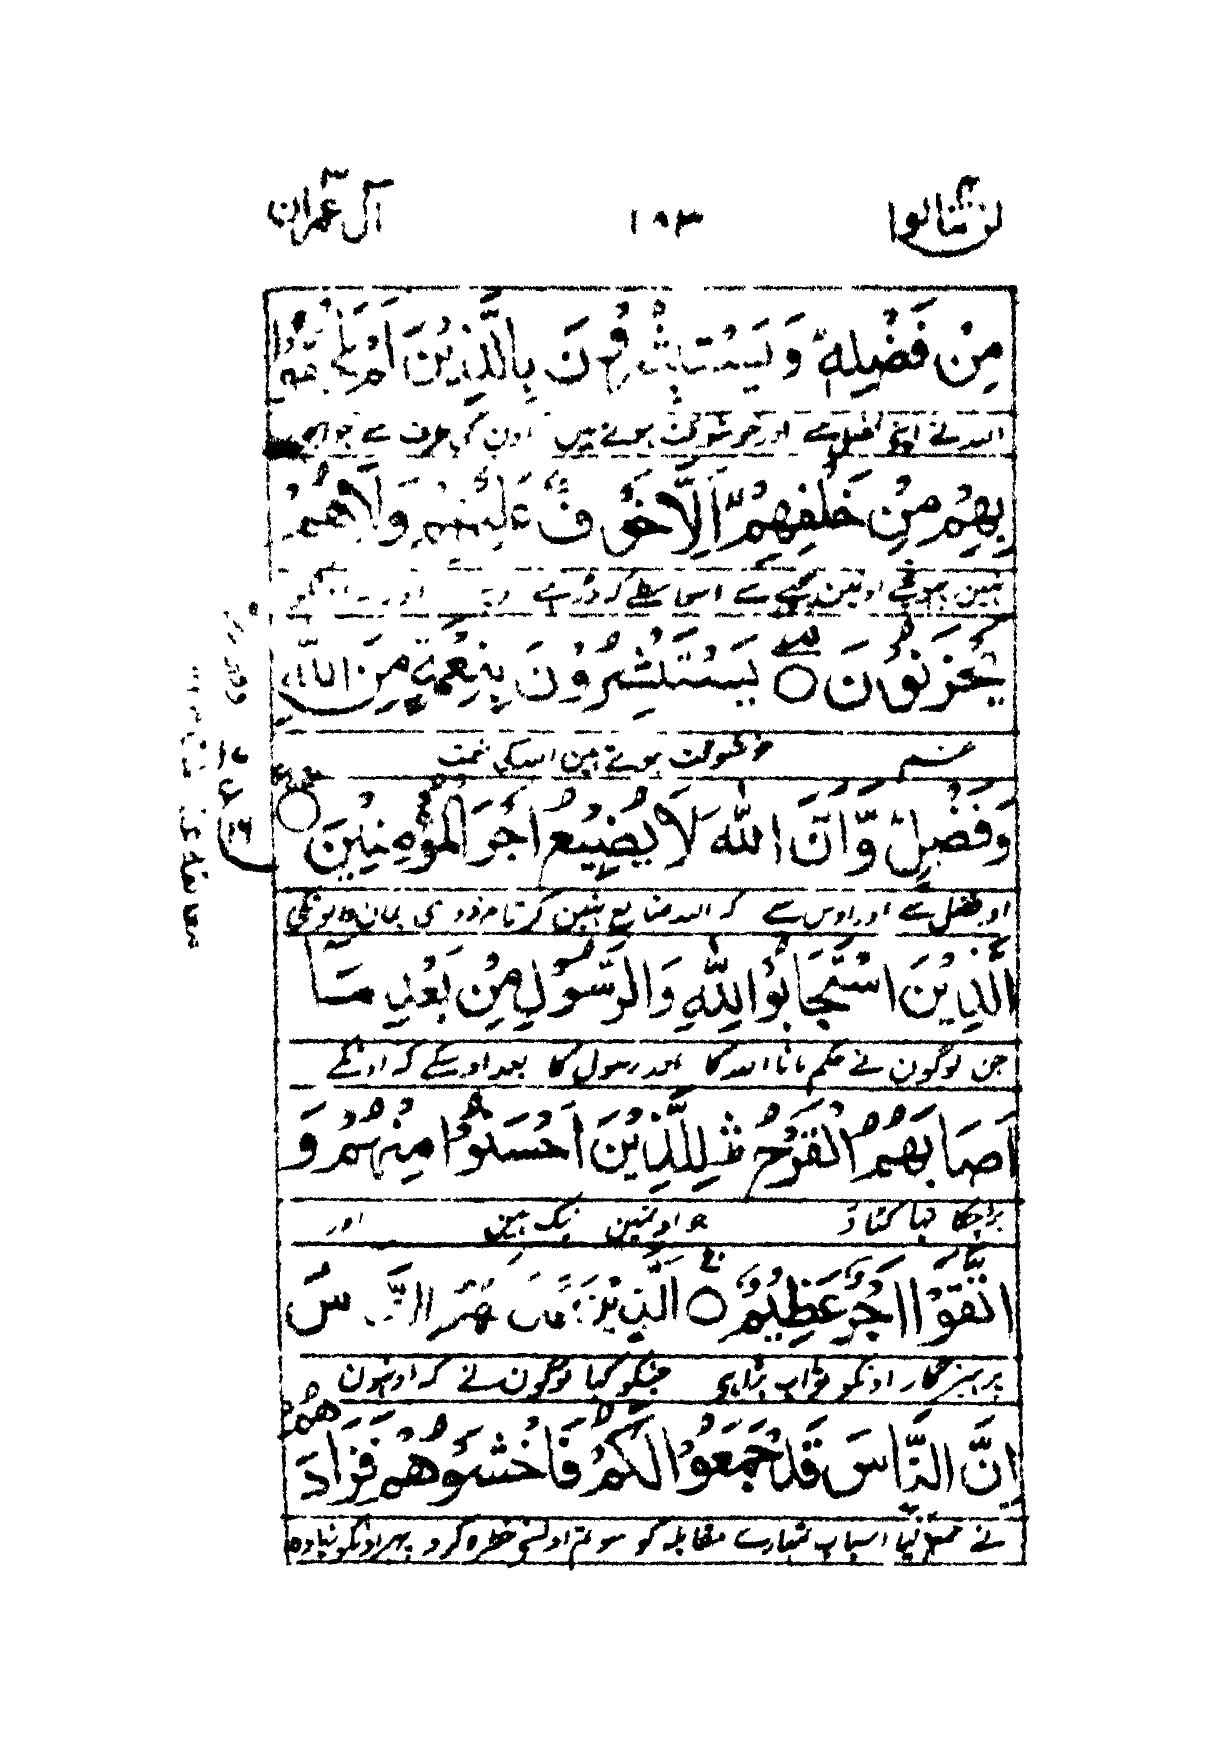 لن تنالوا ٤ ١٩٣ آل عمران ٣
مِنْ فَضْلِهٖ وَيَسْتَبْشِرُوْنَ بِالَّذِيْنَ لَمْ يَلْحَقُوْا
اللہ نے اپنے فضل سے اور خوشوقت ہوتے ہیں اون کی طرف سے جو ابھی
بِهِمْ مِنْ خَلْفِهِمْ اَلَّا خَوْفٌ عَلَيْهِمْ وَلَا هُمْ
نہیں پہونچے اونمین پیچھے سے اسواسطے کہ نہ ڈر ہے اور نہ اونکو
يَحْزَنُوْنَ ○ يَسْتَبْشِرُوْنَ بِنِعْمَةٍ مِنَ اللّٰهِ
غم خوشوقت ہوتے ہین اللہ کی نعمت
وَفَضْلٍ وَّاَنَّ اللّٰهَ لَا يُضِيْعُ اَجْرَ الْمُؤْمِنِيْنَ ○
اور فضل سے اور اوس سے کہ اللہ ضایع نہین کرتا مزدوری ایمان والونکی
اَلَّذِيْنَ اسْتَجَابُوْا لِلّٰهِ وَالرَّسُوْلِ مِنْ بَعْدِ مَآ
جن لوگون نے حکم مانا اللہ کا اور رسول کا بعد اوسکے کہ اونکے
اَصَابَهُمُ الْقَرْحُ لِلَّذِيْنَ اَحْسَنُوْا مِنْهُمْ وَ
پڑ چکا تھا کٹاؤ جو اونمین نیک ہین اور
اتَّقَوْا اَجْرٌ عَظِيْمٌ ○ اَلَّذِيْنَ قَالَ لَهُمُ النَّاسُ
پرہیزگار اونکو ثواب بڑا ہی جنکو کہا لوگون نے کہ اونہون
اِنَّ النَّاسَ قَدْ جَمَعُوْا لَكُمْ فَاخْشَوْهُمْ فَزَادَهُمْ
نے جمع کیا اسباب تمہارے مقابلہ کو سو تم اونسے خطرہ کرو پھر اونکو زیادہ